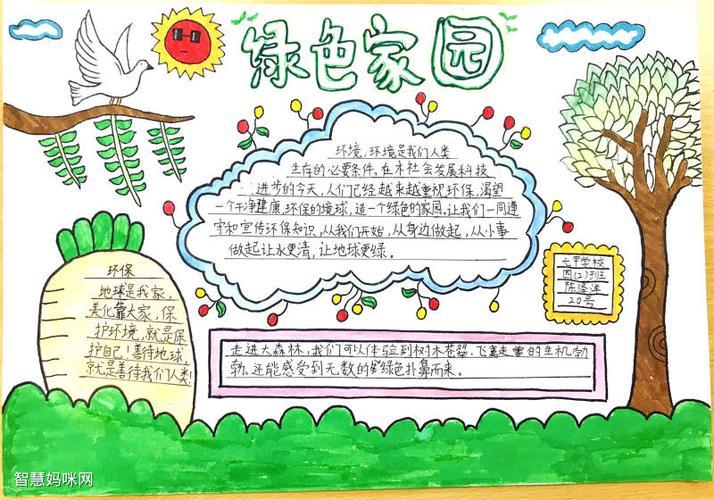 绿色家园
环境,环境是我们人类
生存的必要条件。在木社会发展科技
进步的今天,人们已经越来越重视环保,渴望
一个干净健康,环保的境球,造一个绿色的家园.让我们一同遵
守和宣传环保知识,从我们开始,从身边做起,从小事
做起让水更清,让地球更绿。
环保
地球是我家,
美化靠大家,保
护环境,就是保
护自己!善待地球,
就是善待我们人类!
元甲学校
四(2)班
20号
走进大森林,我们可以体验到树木苍翠,飞禽走兽的生机勃
勃.还能感受到无数的绿色扑鼻而来.
智慧妈咪网